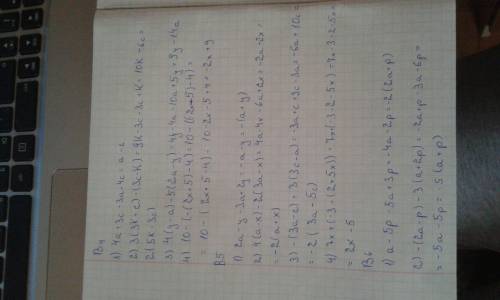 В4
1) 4a+3c-3a-4c=a-c
2) 3(3k-c)-(3c-k)=9k-3c-3c+k=10k-6c=
2(5k-3c)
3) 4(y-a)-5(2a-y)=4y-4a-10a+5y=9y-14a
4) 10-(-(2x+5)-4)=10-((2x+5)-4)=
= 10-(2x+5-4)=10-2x-5+4=-2x+9
В5
1) 2a-y-3a+2y=-a-y=-(a+y)
2) 4(a-x)-2(3a-x)=4a-4x-6a+2x=-2a-2x=
=-2(a+x)
3) -(3a-c)+3(3c-a)=-3a+c+9c-3a=-6a+10c=
=-2(3a-5c)
4) 7x+(-3-(2+5x))=7x+(-3-2-5x)=7x-3-2-5x=
= 2x-5
В6
1) a-5p-5a+3p=-4a-2p=-2(2a+p)
2) -(2a-p)-3(a+2p)=-2a+p-3a-6p=
=-5a-5p=-5(a+p)